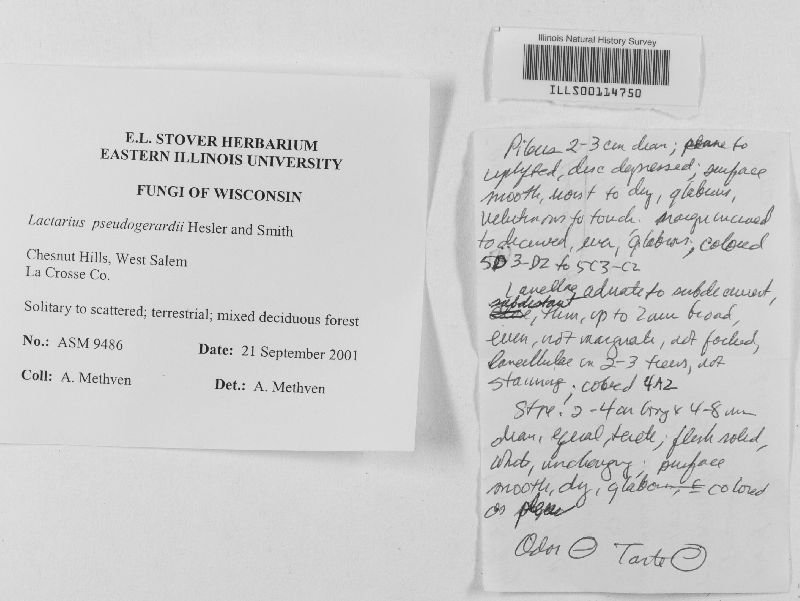 Illinois Natural History Survey
ILLS00114750
E.L. STOVER HERBARIUM
EASTERN ILLINOIS UNIVERSITY
FUNGI OF WISCONSIN
Lactarius pseudogerardii Hesler and Smith
Chesnut Hills, West Salem
La Crosse Co.
Solitary to scattered; terrestrial; mixed deciduous forest
No.: ASM 9486 Date: 21 September 2001
Coll: A. Methven Det.: A. Methven
Pileus 2-3 cm diam; plane to
uplifted, disc depressed; surface
smooth, moist to dry, glabrous,
velutinous to touch. margin incurved
to decurved, even, glabrous; colored
5D3-D2 to 5C3-C2
Lamellae adnate to subdecurrent,
subdistant, thin, up to 2 mm broad,
even, not marginate, not forked,
lamellulae in 2-3 tiers, not
staining; colored 4A2
Stipe: 2-4 cm long x 4-8 mm
diam, equal, terete; flesh solid,
white, unchanging; surface
smooth, dry, glabrous, colored
as pileus
Odor – Taste –